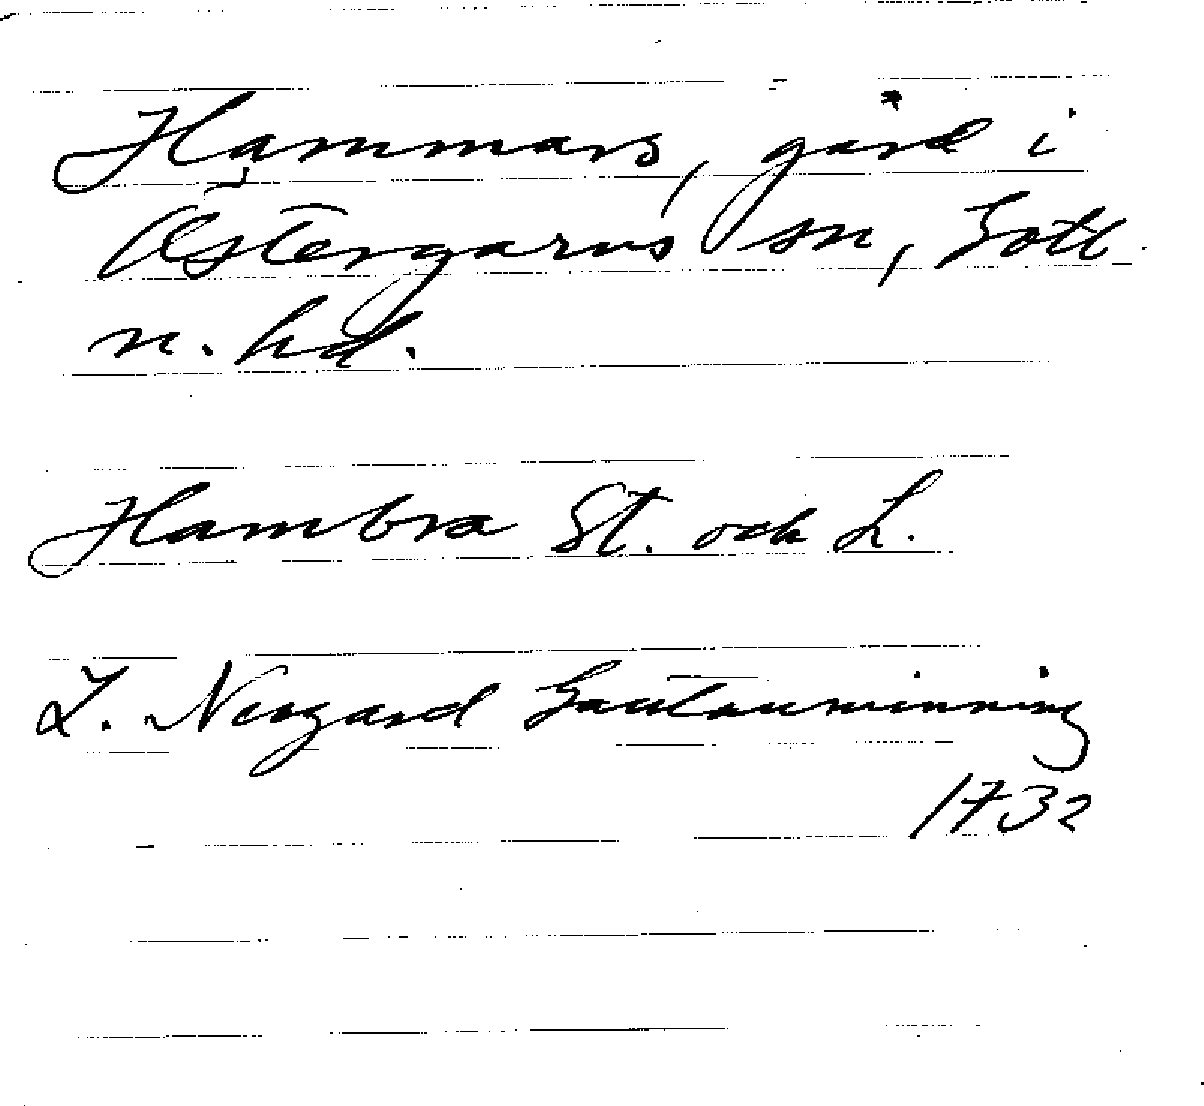 Hammars, gård i
Östergarns sn, Gotl.
n. hd.
Hambra St. och L.
L. Neogard Gautauminning
1732